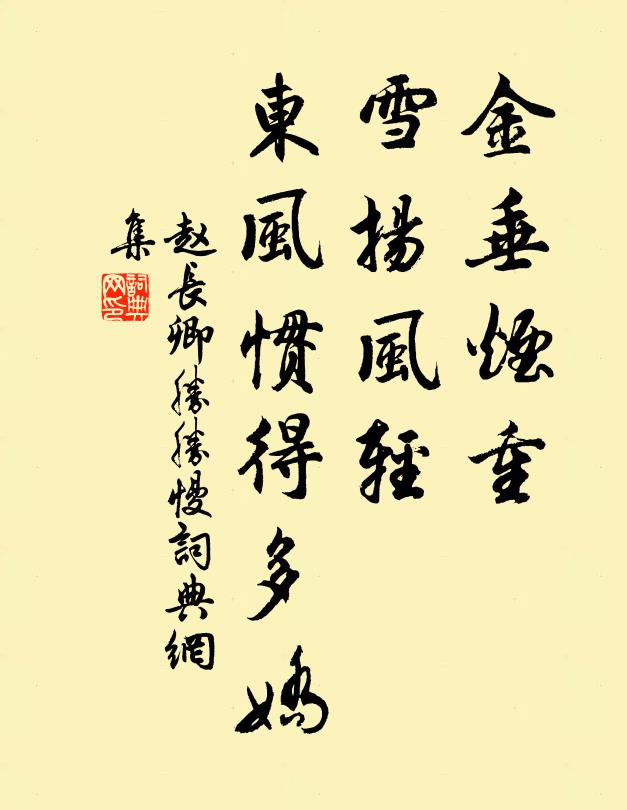 金垂煙重
雪揚風輕
東風慣得多嬌
赵長卿勝勝慢詞典網
集
詞典
网印